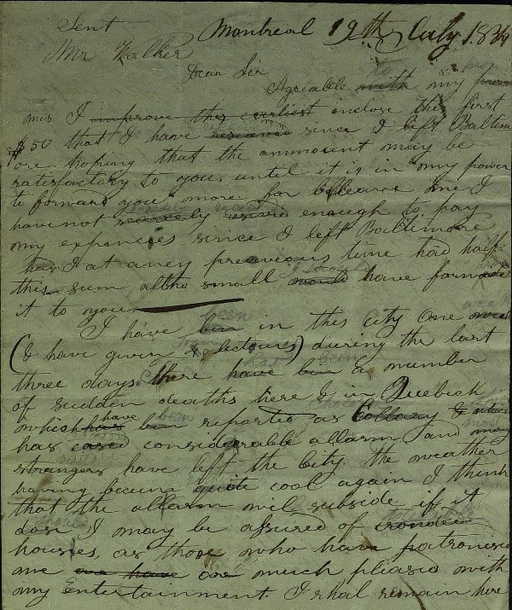 Sent Montreal 19th July 1834
Mr Walker
Dear Sir
Agriable with my
mis I improve this earliest inclose this first
$50 that I have since I left Baltim
ore hoping that the ammount may be
satisfactory to you until it is in my power
to forward you more for beleave me I
have not scarcely enough to pay
my expences since I left Baltimore
had I at aney preavious time had half
this sum altho small would have forwd
it to you
I have ben in this city one week
(& have given lectures) during the last
three days there have ben a number
of sudden deaths here & in Quebeck
which have ben reported as &
has considerable allarm and many
strangers have left the city the weather
having becum quite cool again I think
that the allarm will subside if it
dos I may be assured of
houses, as those who have patronised
me are have are much pleased with
my entertainment. I shal remain here